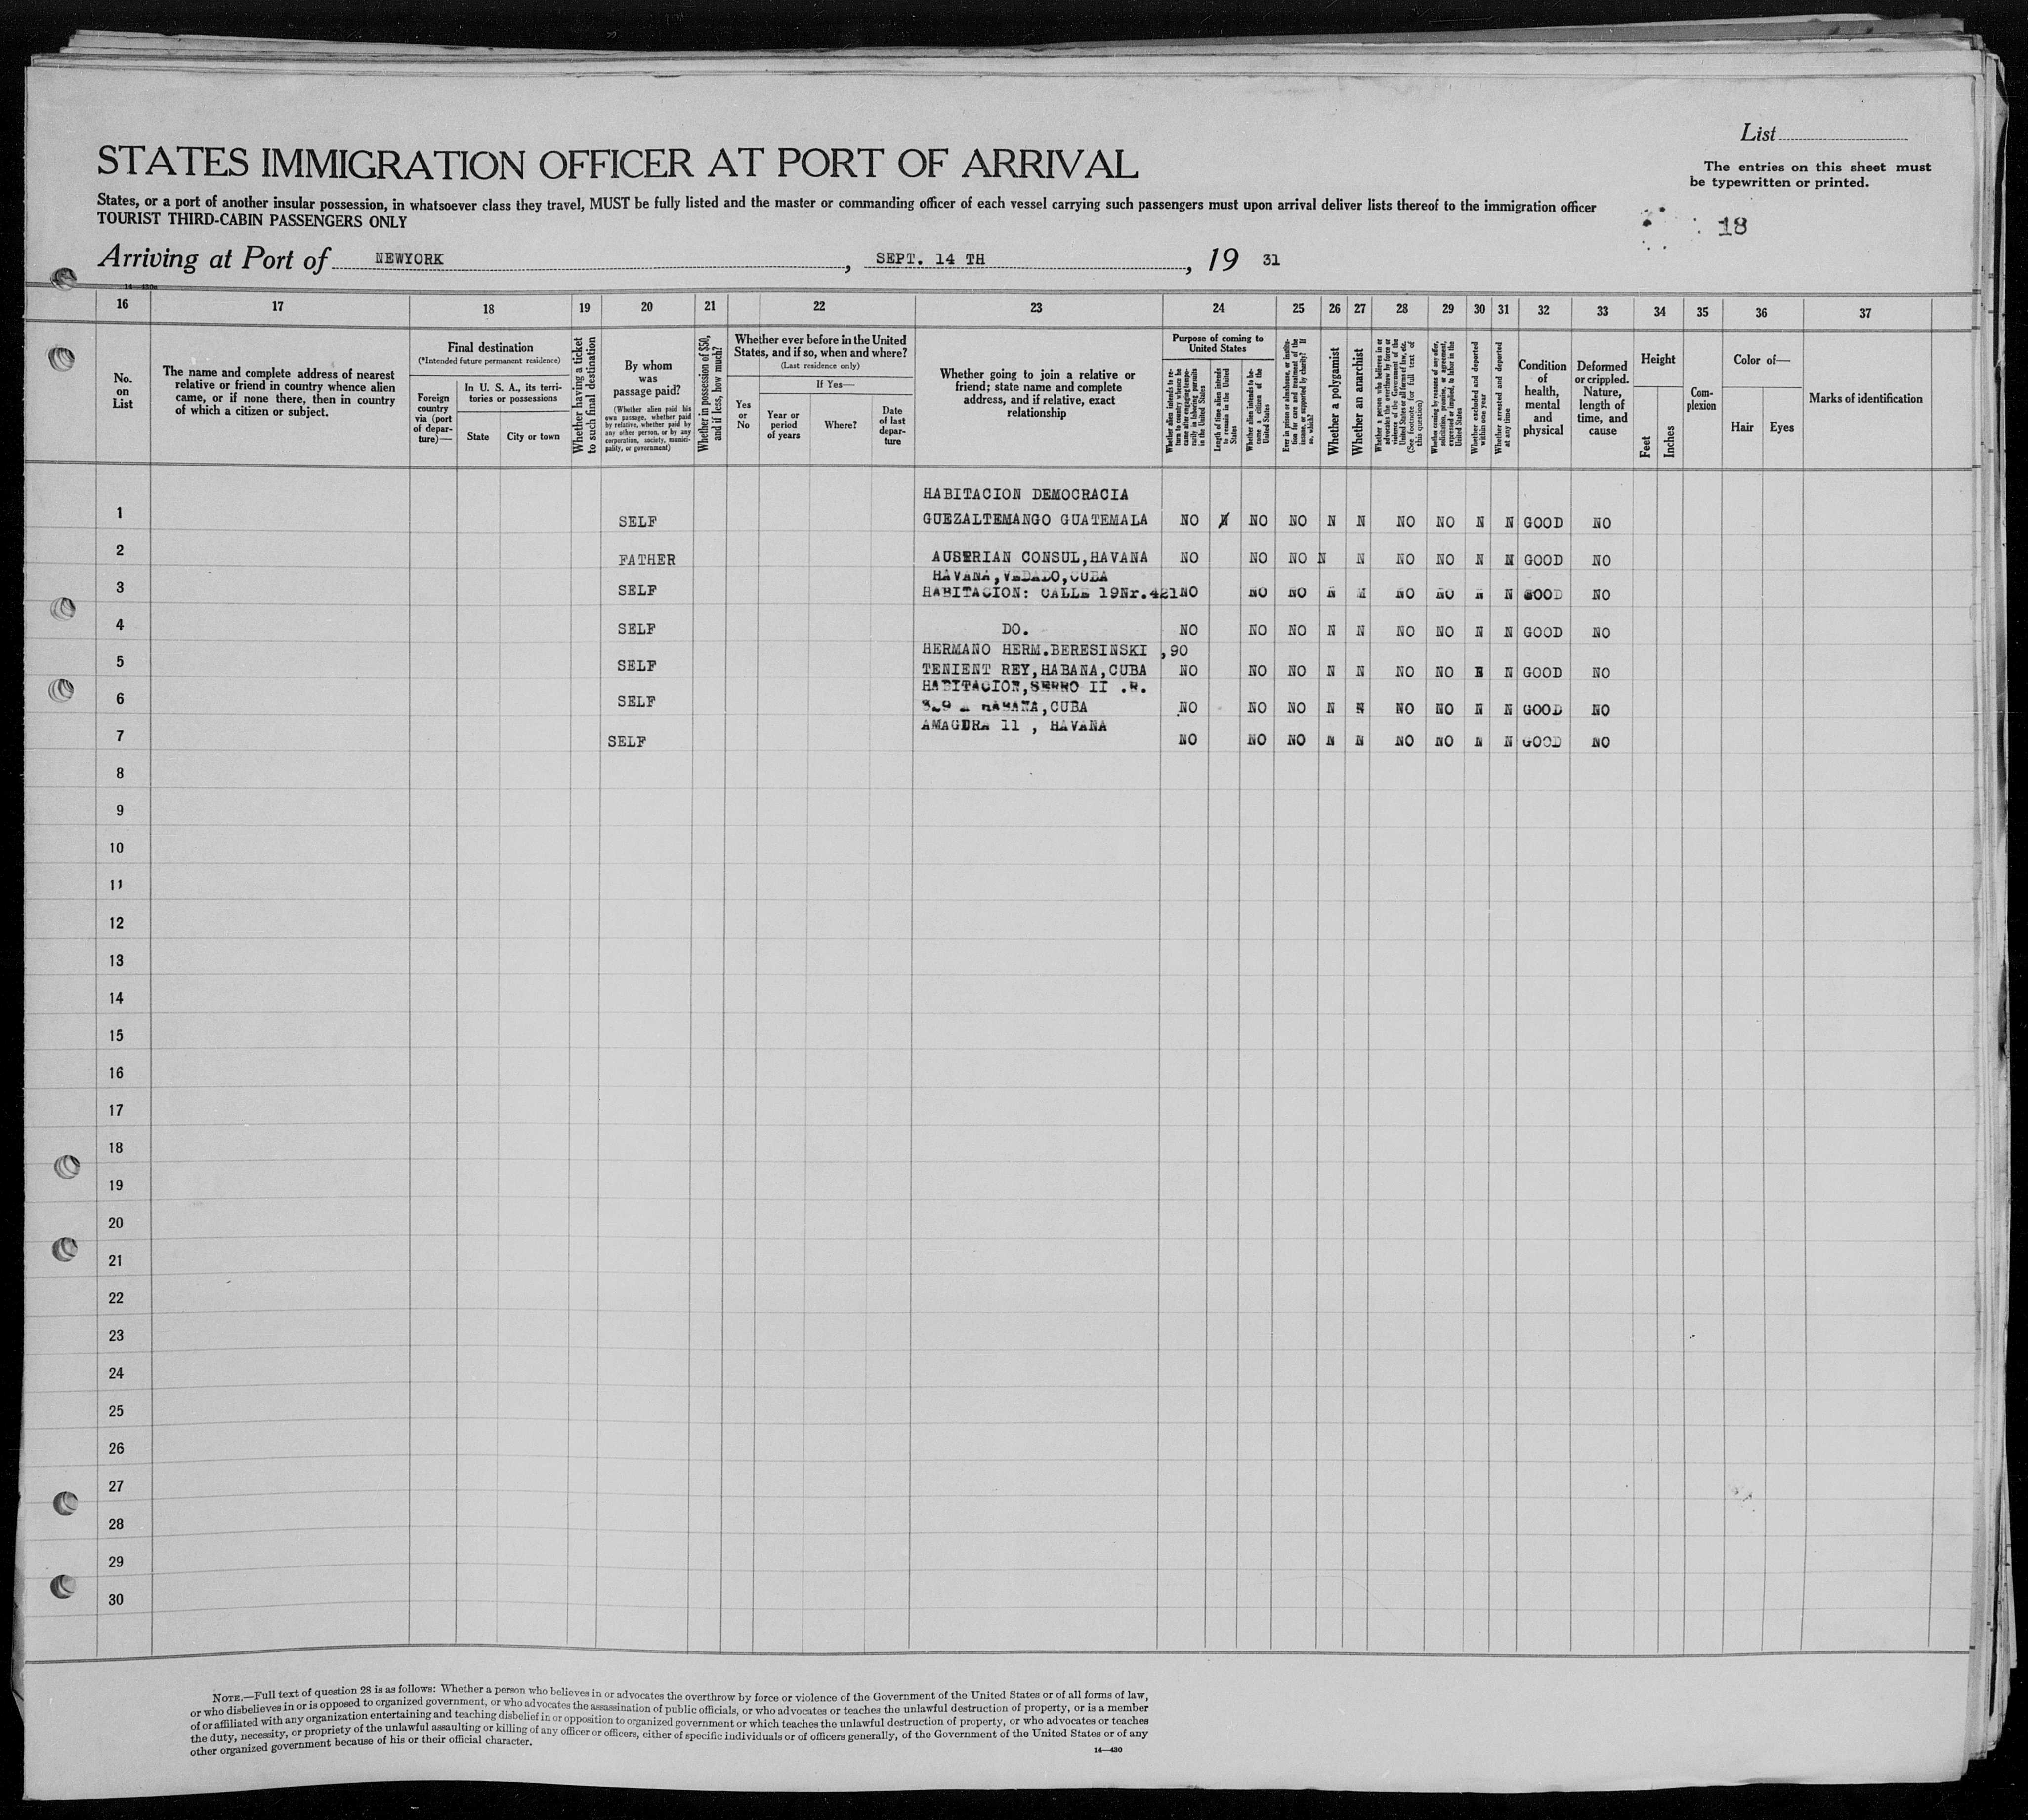 List
STATES IMMIGRATION OFFICER AT PORT OF ARRIVAL
The entries on this sheet must
be typewritten or printed.
States, or a port of another insular possession, in whatsoever class they travel, MUST be fully listed and the master or commanding officer of each vessel carrying such passengers must upon arrival deliver lists thereof to the immigration officer
TOURIST THIRD-CABIN PASSENGERS ONLY
18
Arriving at Port of NEWYORK, SEPT. 14 TH, 19 31
14—430a
16 17 18 19 20 21 22 23 24 25 26 27 28 29 30 31 32 33 34 35 36 37
No.
on
List
The name and complete address of nearest
relative or friend in country whence alien
came, or if none there, then in country
of which a citizen or subject.
Final destination
(*Intended future permanent residence)
Foreign
country
via (port
of depar-
ture)—
In U. S. A., its terri-
tories or possessions
State
City or town
Whether having a ticket
to such final destination
By whom
was
passage paid?
(Whether alien paid his
own passage, whether paid
by relative, whether paid by
any other person, or by any
corporation, society, munici-
pality, or government)
Whether in possession of $50,
and if less, how much?
Whether ever before in the United
States, and if so, when and where?
(Last residence only)
Yes
or
No
If Yes—
Year or
period
of years
Where?
Date
of last
depar-
ture
Whether going to join a relative or
friend; state name and complete
address, and if relative, exact
relationship
Purpose of coming to
United States
Whether alien intends to re-
turn to country whence he
came after engaging tempo-
rarily in laboring pursuits
in the United States
Length of time alien intends
to remain in the United
States
Whether alien intends to be-
come a citizen of the
United States
Ever in prison or almshouse, or institu-
tion for care and treatment of the
insane, or supported by charity? If
so, which?
Whether a polygamist
Whether an anarchist
Whether a person who believes in or
advocates the overthrow by force or
violence of the Government of the
United States or all forms of law, etc.
(See footnote for full text of
this question)
Whether coming by reason of any offer,
solicitation, promise, or agreement,
expressed or implied, to labor in the
United States
Whether excluded and deported
within one year
Whether arrested and deported
at any time
Condition
of
health,
mental
and
physical
Deformed
or crippled.
Nature,
length of
time, and
cause
Height
Feet
Inches
Com-
plexion
Color of—
Hair
Eyes
Marks of identification
HABITACION DEMOCRACIA
1 SELF GUEZALTEMANGO GUATEMALA NO NO NO N N NO NO N N GOOD NO
2 FATHER AUSTRIAN CONSUL, HAVANA NO NO NO N N NO NO N N GOOD NO
HAVANA, VEDADO, CUBA
3 SELF HABITACION: CALLE 19Nr.421 NO NO NO N N NO NO N N GOOD NO
4 SELF DO. NO NO NO N N NO NO N N GOOD NO
HERMANO HERM.BERESINSKI ,90
5 SELF TENIENT REY, HABANA, CUBA NO NO NO N N NO NO N N GOOD NO
HABITACION, SERRO II .R.
6 SELF HABANA, CUBA NO NO NO N N NO NO N N GOOD NO
AMAGURA 11 , HAVANA
7 SELF NO NO NO N N NO NO N N GOOD NO
8
9
10
11
12
13
14
15
16
17
18
19
20
21
22
23
24
25
26
27
28
29
30
NOTE.—Full text of question 28 is as follows: Whether a person who believes in or advocates the overthrow by force or violence of the Government of the United States or of all forms of law,
or who disbelieves in or is opposed to organized government, or who advocates the assassination of public officials, or who advocates or teaches the unlawful destruction of property, or is a member
of or affiliated with any organization entertaining and teaching disbelief in or opposition to organized government or which teaches the unlawful destruction of property, or who advocates or teaches
the duty, necessity, or propriety of the unlawful assaulting or killing of any officer or officers, either of specific individuals or of officers generally, of the Government of the United States or of any
other organized government because of his or their official character.
14—430